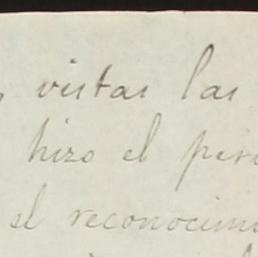 vistas las
hizo el peri
el reconocimi